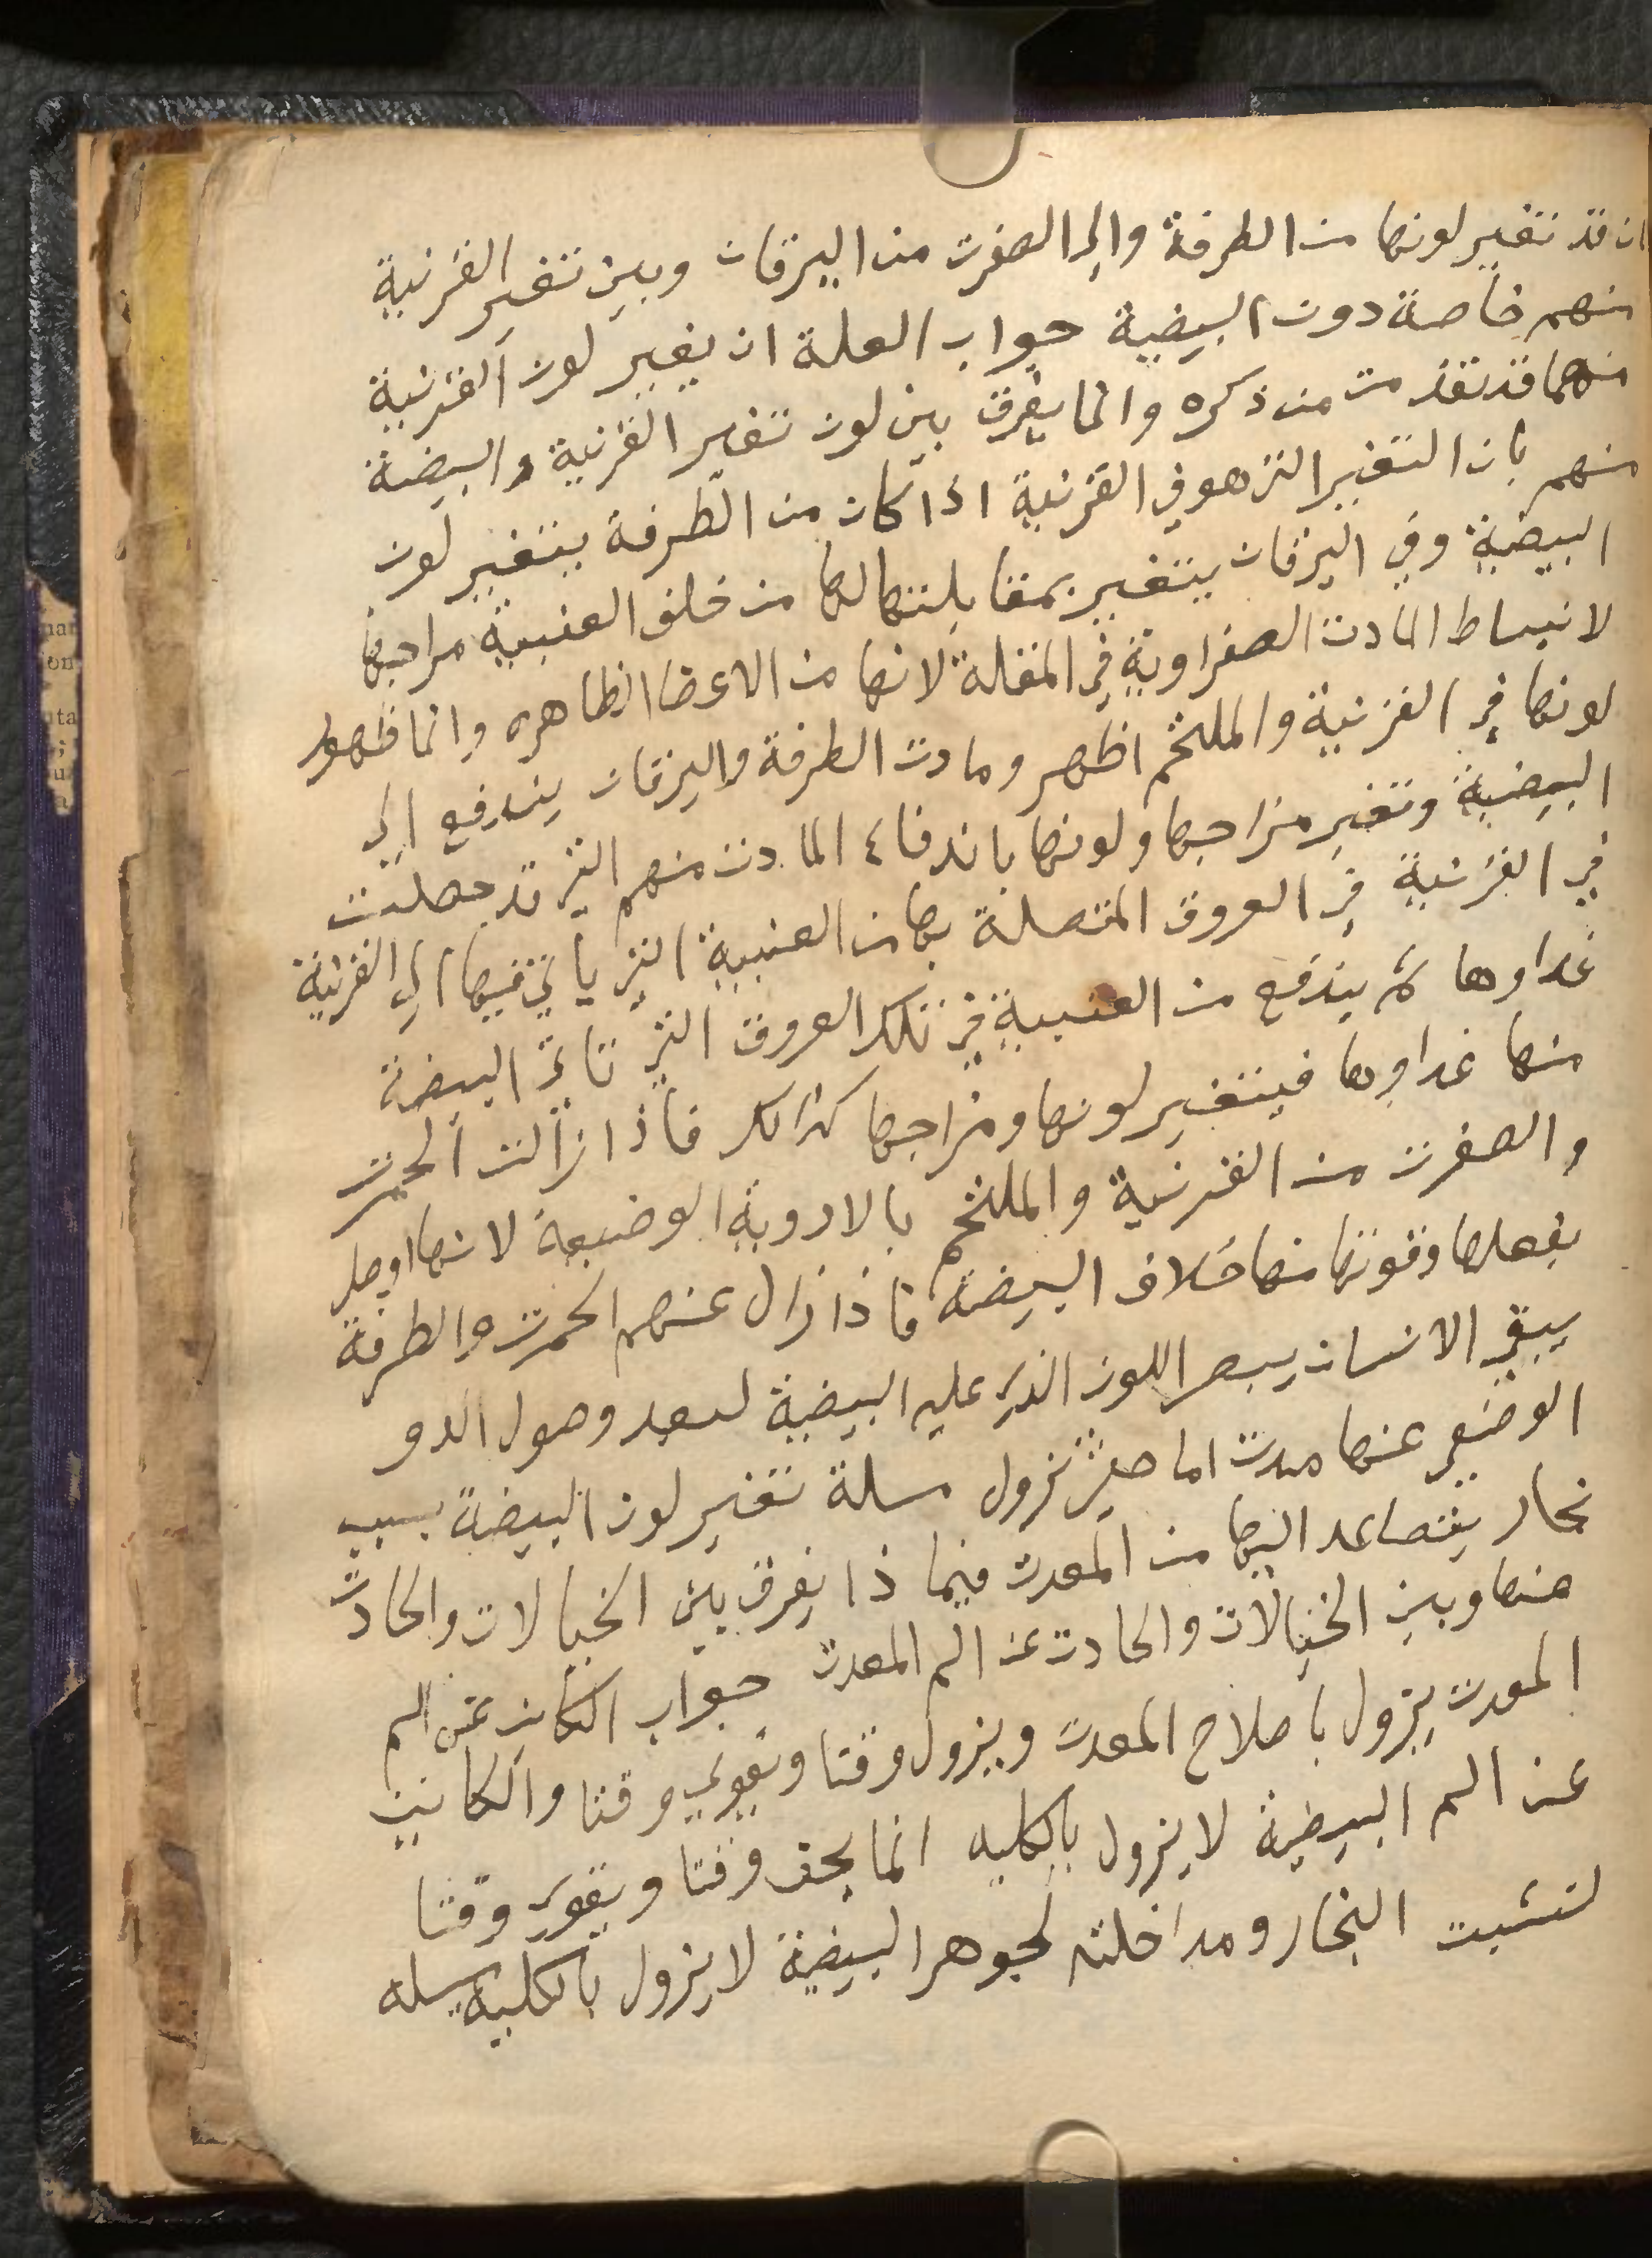 ان قد تتغير لونها من الطرفة والى الصفرت من اليرقان وبين تتغير القرنية
منهم خاصة دون البيضية جواب العلة ان يغير لون القرنية
منهما قد تقدمت من ذكره وانما يفرق بين لون تتغير القرنية والبيضة
منهم بان التغير التي هو في القرنية اذا كان من الطرفة يتغير لون
البيضية وفي اليرقان يتغير بمقابلتها لها من خلف العنبية مراجها
لانبساط المادت الصفراوية في المقلة لانها من الاعضا الظاهره وانما ظهور
لونها في القرنية والملتحم اظهر ومادت الطرفة واليرقان يندفع الى
البيضية وتغير مزاجها ولونها باندفاع المادت منهم التي قد حصلت
في القرنية في العروق المتصلة بها من العنبية التي ياتي فيها الى القرنية
غداوها ثم يندفع من العنبية في تلك العروق التي تاتي البيضة
منها غداوها فيتغير لونها ومزاجها كذالك فاذا زالت الحمرت
والصفرت من القرنية والملتحم بالادوية الوضيعة لانها اوصل
بفعلها وقوتها منها خلاف البيضة فاذا زال عنهم الحمرت والطرفة
يبقى الانسان يبصر اللون الذي عليه البيضية لبعد وصول الدو
الوضعي عنها مدت اما حين تزول مسلة تتغير لون البيضة بسبب
بخار يتصاعد اليها من المعدت فيما ذا يفرق بين الخيالات والحادث
منها وبين الخيالات والحادت عن الم المعدت جواب الكاين عن الم
المعدت يزول باصلاح المعدت ويزول وقتا ويقوي وقتا والكاين
عن الم البيضية لا يزول بالكليه انما يخف وقتا ويقوى وقتا
لتشبت البخار ومداخلته لجوهر البيضية لا يزول بالكلية مسله